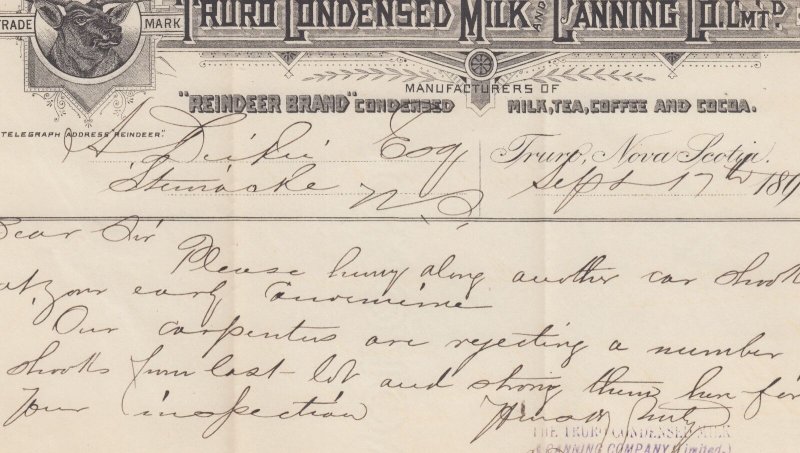 TRADE MARK
TRURO CONDENSED MILK AND CANNING CO. LMTD.
MANUFACTURERS OF
"REINDEER BRAND" CONDENSED MILK, TEA, COFFEE AND COCOA.
TELEGRAPH ADDRESS REINDEER."
A. Dickie Esq
Truro, Nova Scotia.
Stewiacke N.S.
Sept 17th 189
Dear Sir
Please hurry along another car shooks
at your early convenience
Our carpenters are rejecting a number
shooks from last lot and storing them here for
Your inspection
Yours truly
THE TRURO CONDENSED MILK
& CANNING COMPANY (Limited.)